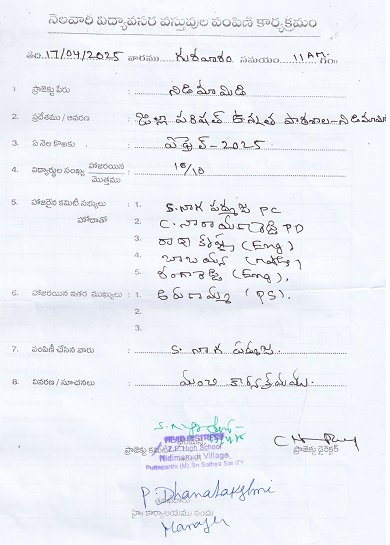 నెలవారి విద్యావసర వస్తువుల పంపిణి కార్యక్రమం
తేది: 17/04/2025 వారము గురువారం సమయం: 11 AM గం॥
1 ప్రాజెక్టు పేరు : నిడిమామిడి
2. ప్రదేశము / ఆవరణ : జిల్లా పరిషత్ ఉన్నత పాఠశాల - నిడిమామిడి
3. ఏ నెల కొఱకు : ఏప్రిల్ - 2025
4. విద్యార్థుల సంఖ్య హాజరయిన / మొత్తము : 10/10
5. హాజరైన కమిటీ సభ్యులు : 1. S. నాగ పద్మజ PC
హోదాతో 2. C. నారాయణరెడ్డి PD
3. రాధా కృష్ణ (Eng)
4. బాబయ్య
5. రంగారెడ్డి (Eng).
6. హాజరయిన ఇతర ముఖ్యులు : 1. (PS).
2.
3.
7. పంపిణీ చేసిన వారు : S. నాగ పద్మజ.
8. వివరణ / సూచనలు : మంచి కార్యక్రమము
ప్రాజెక్టు కమిటీ ప్రాజెక్టు డైరెక్టర్
Z.P. High School
Nidimamidi Village,
Puttaparthi (M), Sri Sathya Sai
P. Dhanalakshmi
కార్యాలయము నందు
Manager